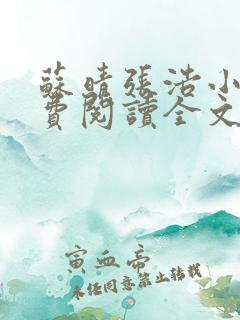 蘇晴張浩小
費閱讀全文
寅血帝
未经同意禁止转载